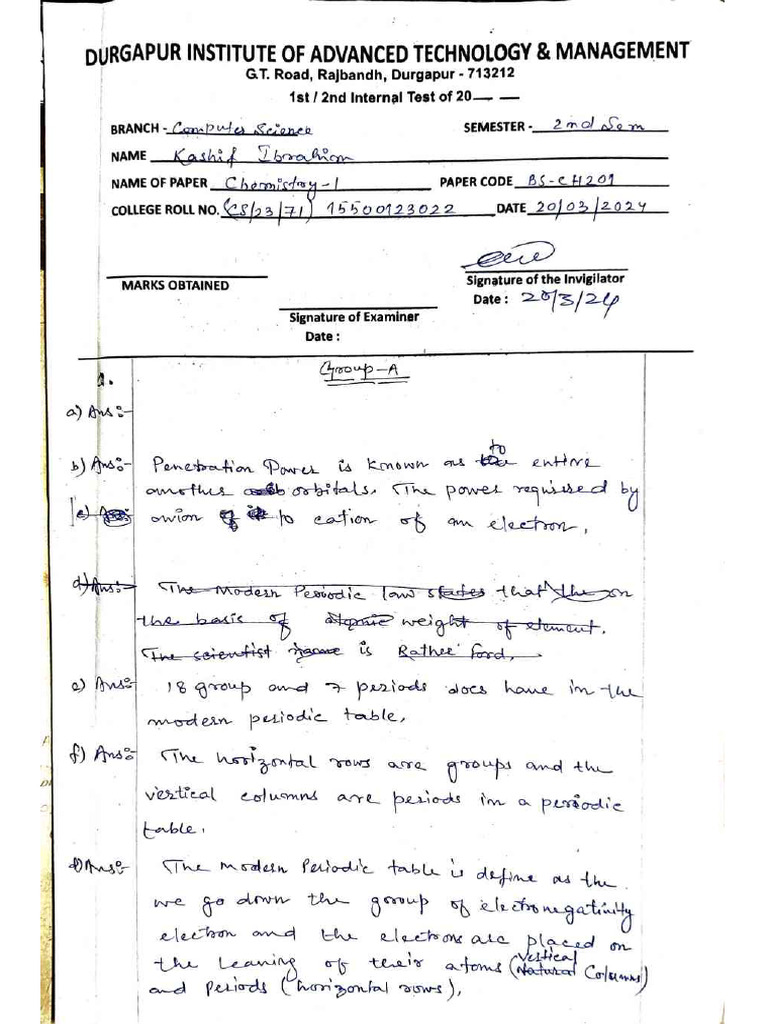 DURGAPUR INSTITUTE OF ADVANCED TECHNOLOGY & MANAGEMENT
G.T. Road, Rajbandh, Durgapur - 713212
1st / 2nd Internal Test of 20
BRANCH - Computer Science SEMESTER - 2nd Sem
NAME Kashif Ibrahim
NAME OF PAPER Chemistry-1 PAPER CODE BS-CH201
COLLEGE ROLL NO. (CS/23/71) 15500123022 DATE 20/03/2024
MARKS OBTAINED
Signature of the Invigilator
Date : 20/3/24
Signature of Examiner
Date :
Group-A
1.
a) Ans:-
b) Ans:- Penetration Power is known as to entire
another orbitals. The power required by
anion to cation of an electron.
d) Ans:- The Modern Periodic law states that the on
the basis of atomic weight of element.
The scientist name is Rather Ford.
e) Ans:- 18 group and 7 periods does have in the
modern periodic table.
f) Ans:- The horizontal rows are groups and the
vertical columns are periods in a periodic
table.
d) Ans:- The Modern Periodic table is define as the
we go down the group of electronegatinity
electron and the electrons are placed on
the leaning of their atoms (vertical Columns)
and periods (horizontal rows).